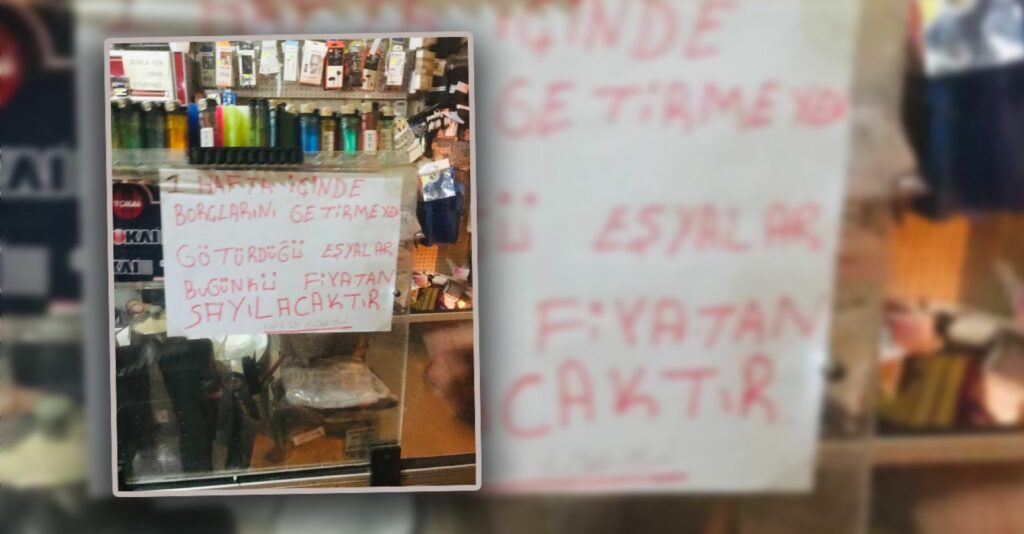 1 HAFTA İÇİNDE
BORÇLARINI GETİRMEYEN
GÖTÜRDÜĞÜ EŞYALAR
BUGÜNKÜ FİYATAN
SAYILACAKTIR
TOKAI
KAI
İÇİNDE
GETİRMEYEN
Ü EŞYALAR
FİYATAN
CAKTIR